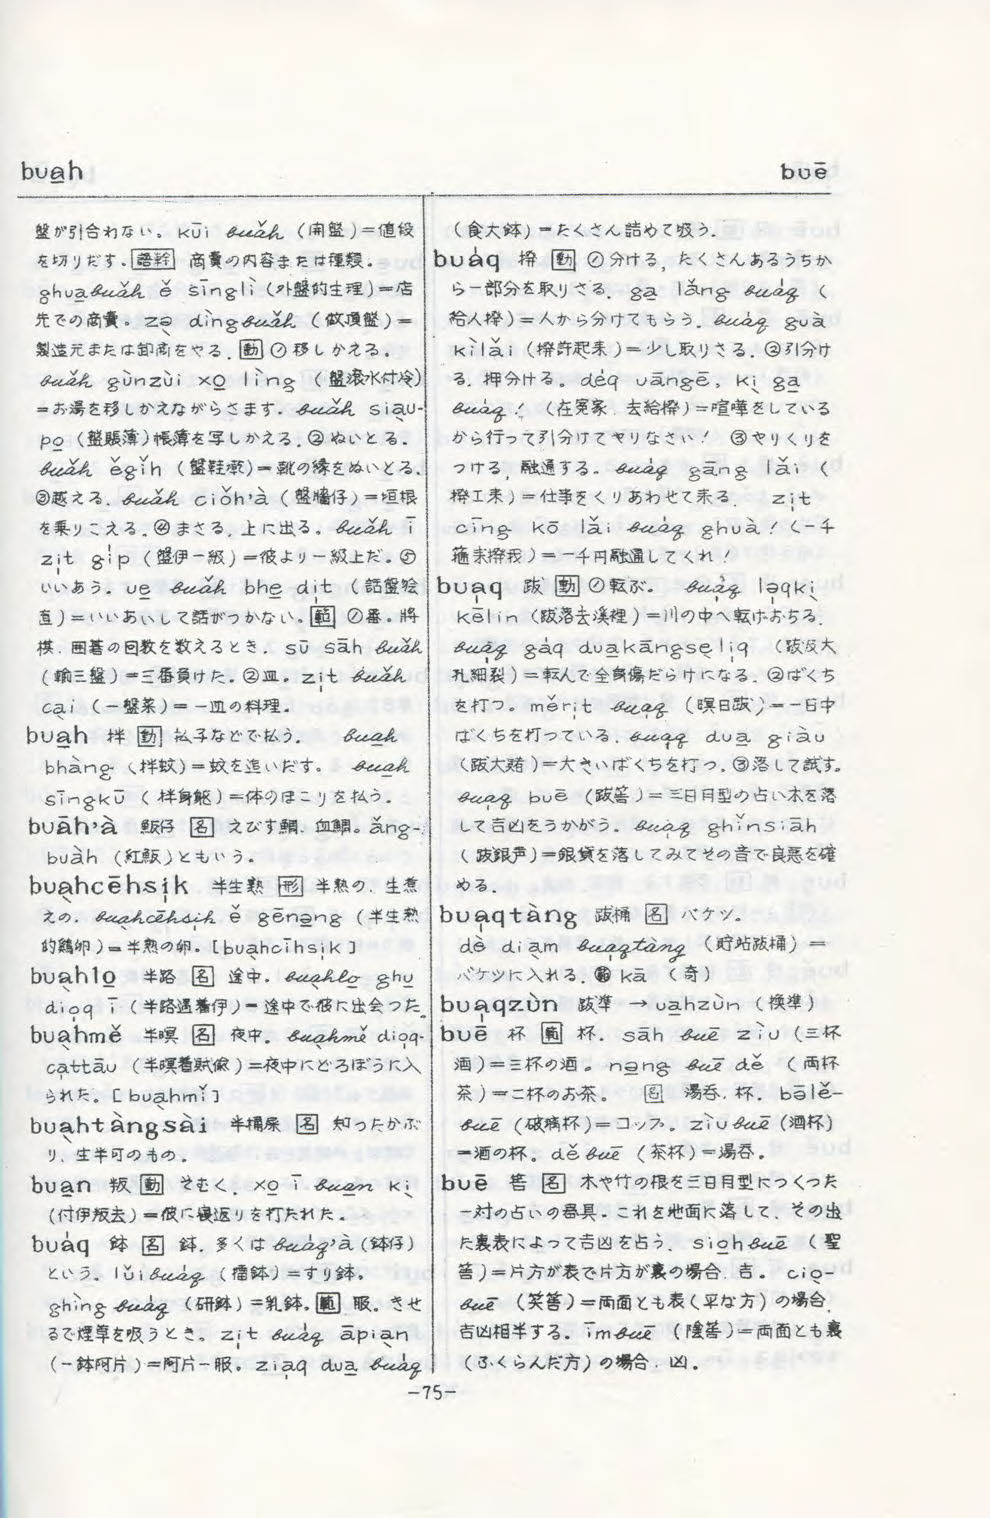 bua̱h
buē
盤が引合わない。kūi buǎh (開盤)=値段
を切りだす。語幹 商賣の内容または種類。
ghua̱buǎh ě sīnglì (外盤的生理)=店
先での商賣。zə̣ dìngbuǎh (做頂盤)=
製造元または卸商をやる。動 ①移しかえる。
buǎh gùnzùi xo̱ lìng (盤滾水付冷)
=お湯を移しかえながらさます。buǎh siạu-
po̱ (盤賬薄)帳薄を写しかえる。②ぬいとる。
buǎh ěgǐh (盤鞋墘)=靴の縁をぬいとる。
③越える。buǎh ciǒh'à (盤牆仔)=垣根
を乗りこえる。④まさる、上に出る。buǎh ī
zịt gịp (盤伊一級)=彼より一級上だ。⑤
いいあう。ue̱ buǎh bhe̱ dịt (話盤𣍐
直)=いいあいして話がつかない。範 ①番。將
棋、囲碁の回数を数えるとき。sū sāh buǎh
(輸三盤)=三番負けた。②皿。zịt buǎh
cại (一盤菜)=一皿の料理。
buạh 拌 動 払子などで払う。 buạh
bhàng (拌蚊)=蚊を追いだす。 buạh
sīngkū (拌身軀)=体のほこりを払う。
buāh'à 魬仔 名 えびす鯛、血鯛。ǎng-
buàh (紅魬)ともいう。
buạhcēhsịk 半生熟 形 半熟の、生煮
えの。buạhcēhsịk ě gēnạng (半生熟
的鶏卵)=半熟の卵。[buạhcīhsịk]
buạhlo̱ 半路 名 途中。buạhlo̱ ghu
dịoq ī (半路遇着伊)=途中で彼に出会った。
buạhmě 半暝 名 夜中。buạhmě dịoq-
cạttāu (半暝着賊偸)=夜中にどろぼうに入
られた。[buạhmǐ]
buạhtàngsài 半桶屎 名 知ったかぶ
り、生半可のもの。
buạn 叛 動 そむく。xo̱ ī buạn kị
(付伊叛去)=彼に寝返りを打たれた。
buáq 鉢 名 鉢。多くは buáq'à (鉢仔)
という。lǔibuáq (擂鉢)=すり鉢。
ghìng buáq (研鉢)=乳鉢。範 服。きせ
るで煙草を吸うとき。zịt buáq āpiạn
(一鉢阿片)=阿片一服。ziạq dua̱ buáq
(食大鉢)=たくさん詰めて吸う。
buáq 撥 動 ①分ける、たくさんあるうちか
ら一部分を取りさる。ga̱ lǎng buáq (
給人撥)=人から分けてもらう。buáq guà
kìlǎi (撥許起来)=少し取りさる。②引分け
る、押分ける。déq uāngē, kị ga̱
buáq! (在冤家、去給撥)=喧嘩をしている
から行って引分けてやりなさい! ③やりくりを
つける、融通する。buáq gāng lǎi (
撥工来)=仕事をくりあわせて来る。 zịt
cīng kō lǎi buáq ghuà! (一千
箍来撥我)=一千円融通してくれ!
buạq 跋 動 ①転ぶ。 buạq lə̣qkị
kēlin (跋落去溪裡)=川の中へ転げおちる。
buạq gáq duạkāngsẹliq (跋及大
孔細裂)=転んで全身傷だらけになる。②ばくち
を打つ。měrịt buạq (暝日跋)=一日中
ばくちを打っている。buạq dua̱ giàu
(跋大賭)=大きいばくちを打つ。③落して試す。
buạq buē (跋筶)=三日月型の占い木を落
して吉凶をうかがう。buạq ghǐnsiāh
(跋銀声)=銀貨を落してみてその音で良悪を確
める。
buạqtàng 跋桶 名 バケツ。
dè diạm buạqtàng (貯玷跋桶)=
バケツに入れる。範 kā (奇)
buạqzùn 跋準 →uạhzùn (換準)
buē 杯 範 杯。sāh buē zìu (三杯
酒)=三杯の酒。no̱ng buē dě (両杯
茶)=二杯のお茶。 名 湯呑、杯。bōlě-
buē (玻璃杯)=コップ。zìubuē (酒杯)
=酒の杯。děbuē (茶杯)=湯呑。
buē 筶 名 木や竹の根を三日月型につくった
一対の占いの器具。これを地面に落して、その出
た裏表によって吉凶を占う。siọhbuē (聖
筶)=片方が表で片方が裏の場合、吉。ciọ-
buē (笑筶)=両面とも表(平な方)の場合、
吉凶相半する。īmbuē (陰筶)=両面とも裏
(ふくらんだ方)の場合、凶。
-75-